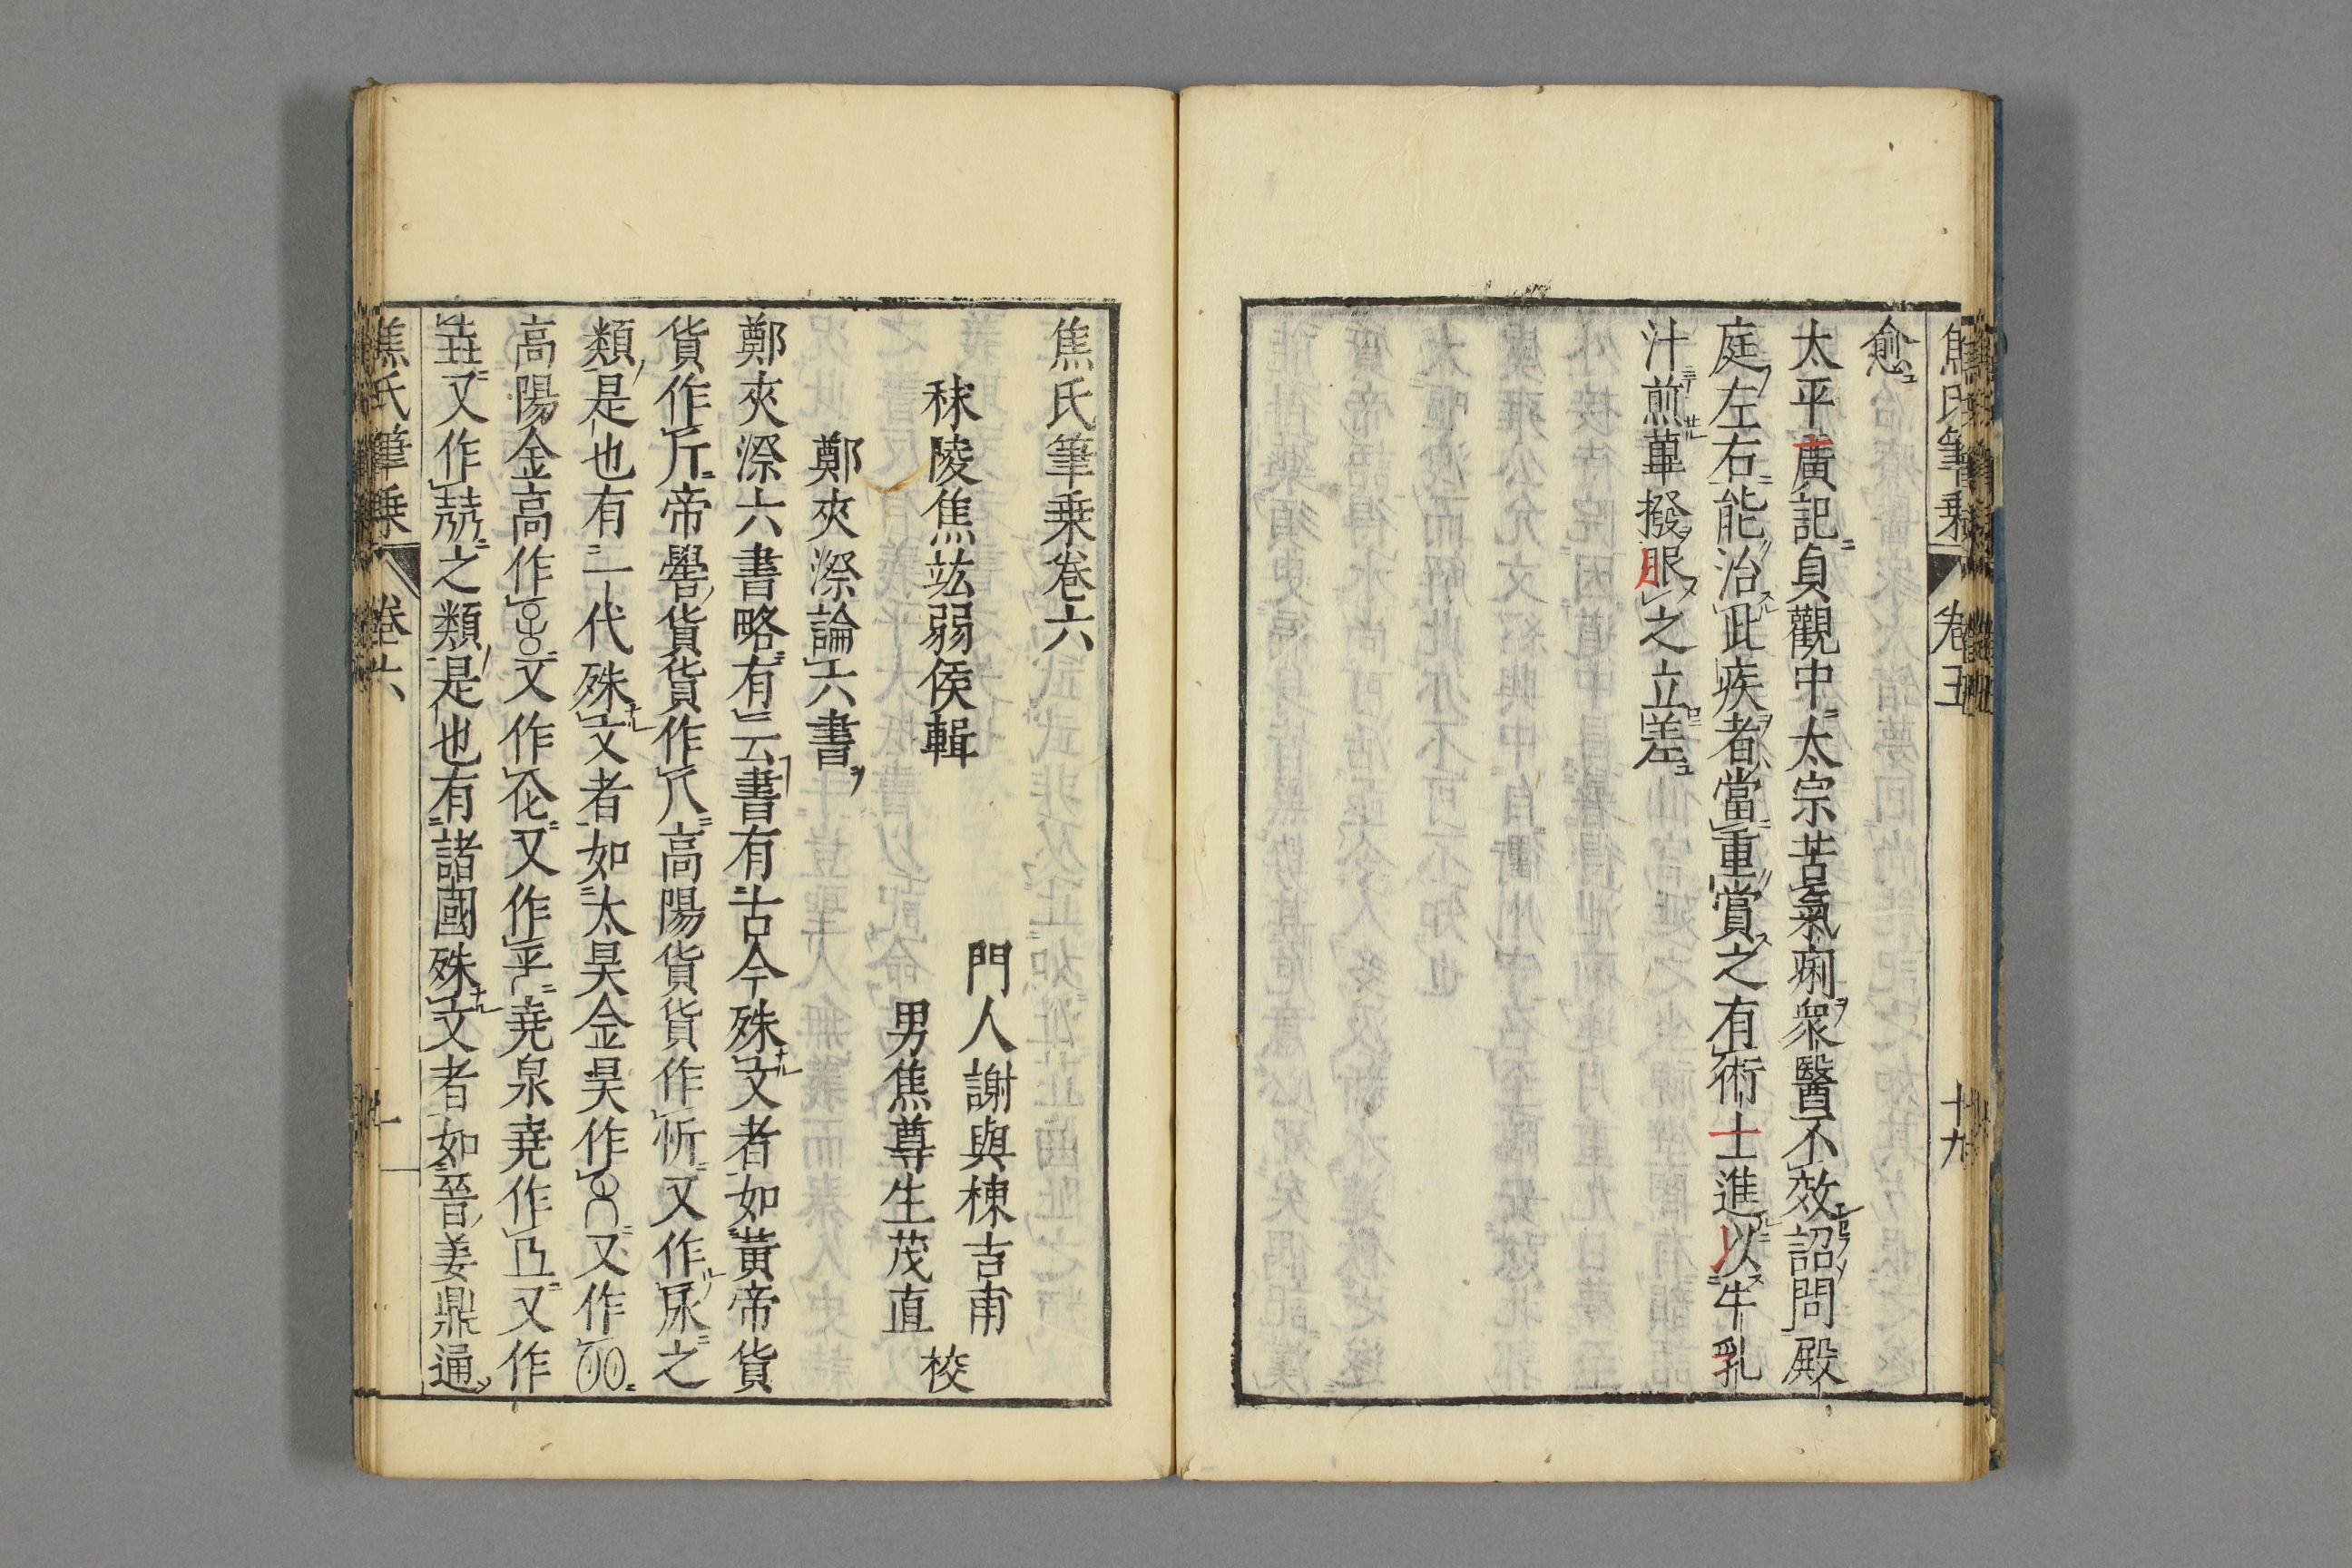 焦氏筆乗 卷五 十九
愈
太平廣記貞觀中太宗苦氣痢衆醫不效詔問殿
庭左右能治此疾者當重賞之有術士進以牛乳
汁煎蓽撥服之立差
焦氏筆乗卷六
秣陵焦竑弱侯輯
門人謝與棟吉甫
男焦尊生茂直
校
鄭夾漈論六書
鄭夾漈六書略有云書有古今殊文者如黃帝貨
貨作斤帝嚳貨貨作 高陽貨貨作 又作 之
類是也有一代殊文者如太昊金昊作 又作
高陽金高作 又作 又作 堯泉堯作 又作
又作 之類是也有諸國殊文者如晉姜鼎通
焦氏筆乗 卷六 一